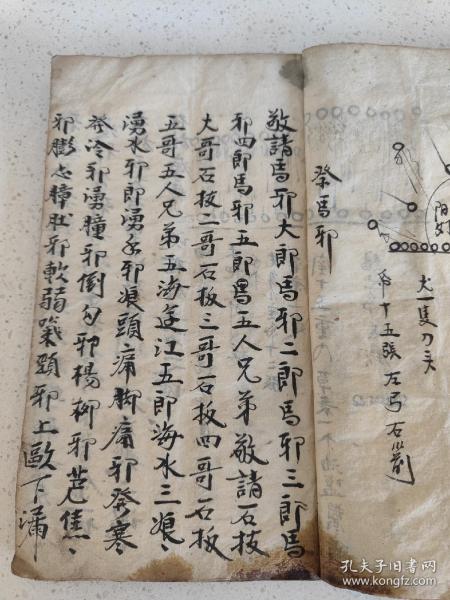 犬一隻刀三
弟十五張左弓右箭
祭馬邪
敬請馬邪大郎馬邪二郎馬邪三郎馬
邪四郎馬邪五郎馬五人兄弟敬請石板
大哥石板二哥石板三哥石板四哥石板
五哥五人兄弟五海逢江五郎海水三娘〻
湧水邪郎湧水邪娘頭痛脚痛邪發寒
發冷邪湧腫邪倒勾邪楊柳邪芭焦〻
邪膨忐腫肚邪軟弱箋頸邪上歐下瀉
孔夫子旧书网
www.kongfz.com